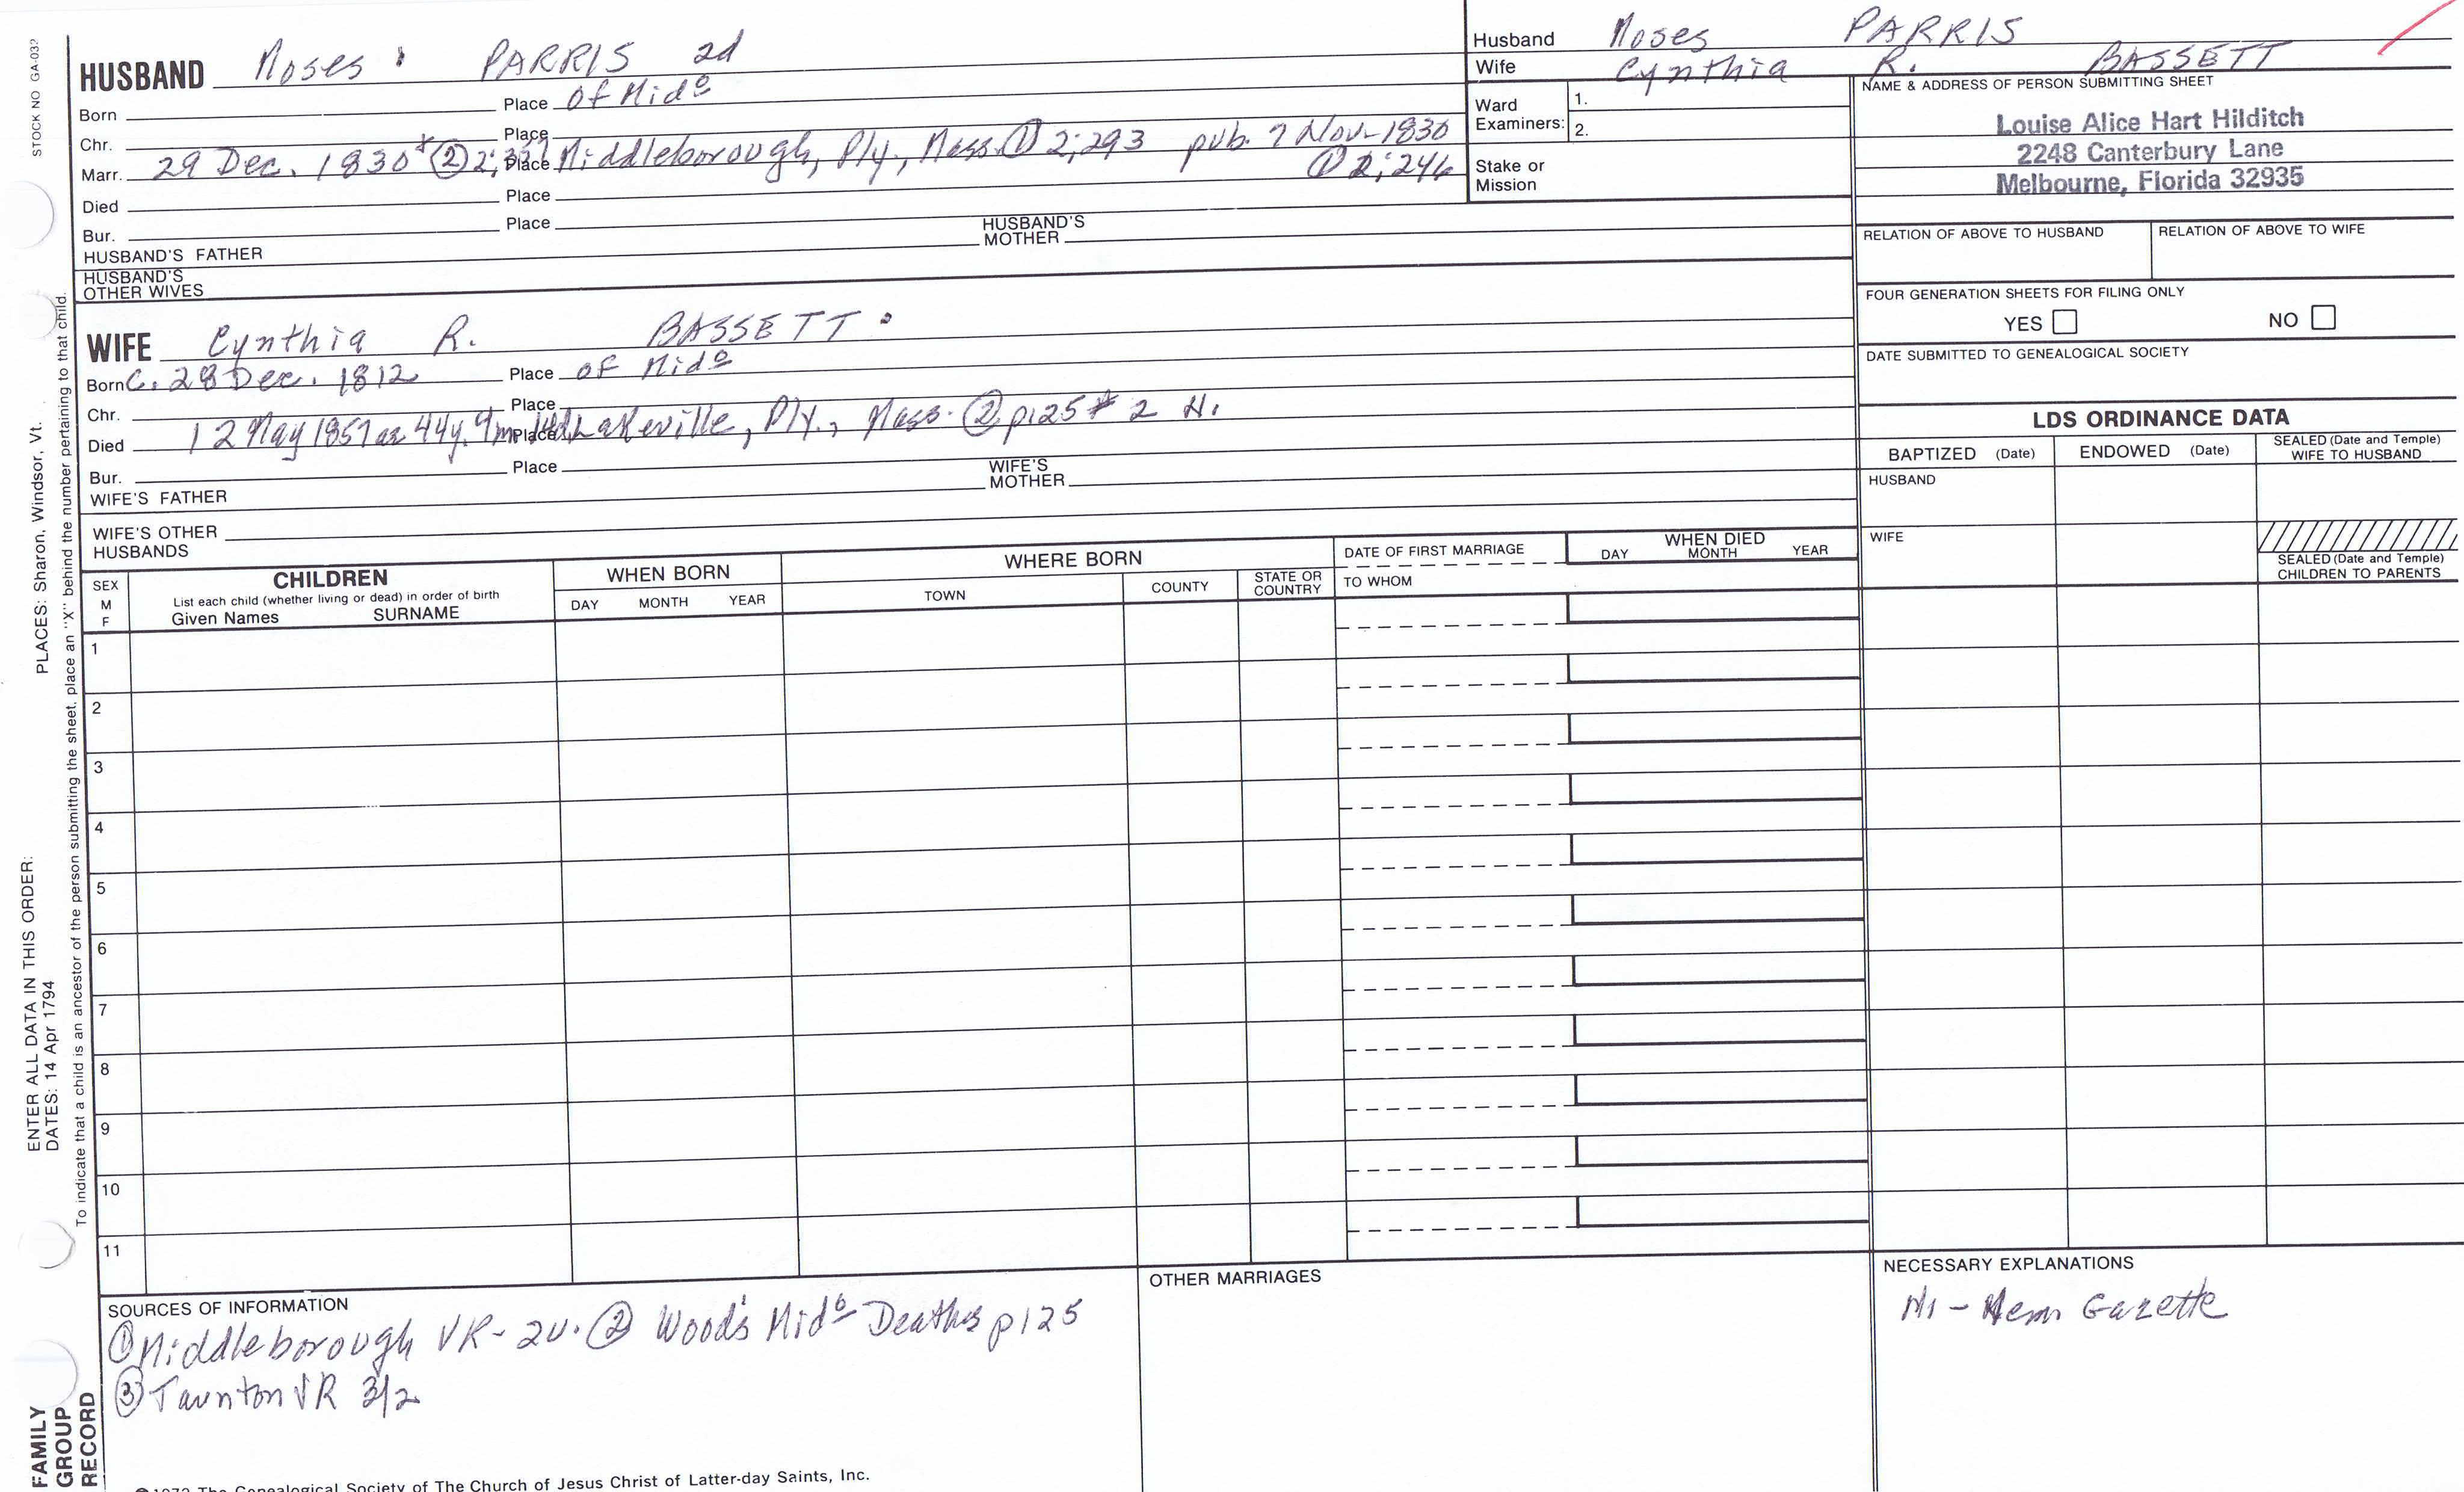 STOCK NO GA-032
PLACES: Sharon, Windsor, Vt.
ENTER ALL DATA IN THIS ORDER:
DATES: 14 Apr 1794
To indicate that a child is an ancestor of the person submitting the sheet, place an "X" behind the number pertaining to that child.
FAMILY
GROUP
RECORD
HUSBAND Moses PARRIS 2d
Born Place of Mido
Chr. Place
Marr. 29 Dec. 1830 * (2) 2; Place Middleborough, Ply., Mass. (1) 2;293 pub. 7 Nov. 1830
(1) 2;246
Died Place
Bur. Place
HUSBAND'S FATHER HUSBAND'S MOTHER
HUSBAND'S
OTHER WIVES
WIFE Cynthia R. BASSETT
Born C. 28 Dec. 1812 Place of Mido
Chr. Place
Died 12 May 1857 ae 44y. 9m Place Lakeville, Ply., Mass. (2) p125 * 2 N.
Bur. Place
WIFE'S FATHER WIFE'S MOTHER
WIFE'S OTHER
HUSBANDS
Husband Moses PARRIS
Wife Cynthia R. BASSETT
Ward
Examiners: 1.
2.
Stake or
Mission
NAME & ADDRESS OF PERSON SUBMITTING SHEET
Louise Alice Hart Hilditch
2248 Canterbury Lane
Melbourne, Florida 32935
RELATION OF ABOVE TO HUSBAND RELATION OF ABOVE TO WIFE
FOUR GENERATION SHEETS FOR FILING ONLY
YES NO
DATE SUBMITTED TO GENEALOGICAL SOCIETY
LDS ORDINANCE DATA
BAPTIZED (Date) ENDOWED (Date) SEALED (Date and Temple)
WIFE TO HUSBAND
HUSBAND
WIFE
SEALED (Date and Temple)
CHILDREN TO PARENTS
SEX
M
F
CHILDREN
List each child (whether living or dead) in order of birth
Given Names SURNAME
WHEN BORN
DAY MONTH YEAR
WHERE BORN
TOWN COUNTY STATE OR
COUNTRY
DATE OF FIRST MARRIAGE
TO WHOM
WHEN DIED
DAY MONTH YEAR
1
2
3
4
5
6
7
8
9
10
11
SOURCES OF INFORMATION
(1) Middleborough VR- 2v. (2) Wood's Mido Deaths p125
(3) Taunton VR 312
OTHER MARRIAGES
NECESSARY EXPLANATIONS
Gazette
The Genealogical Society of The Church of Jesus Christ of Latter-day Saints, Inc.